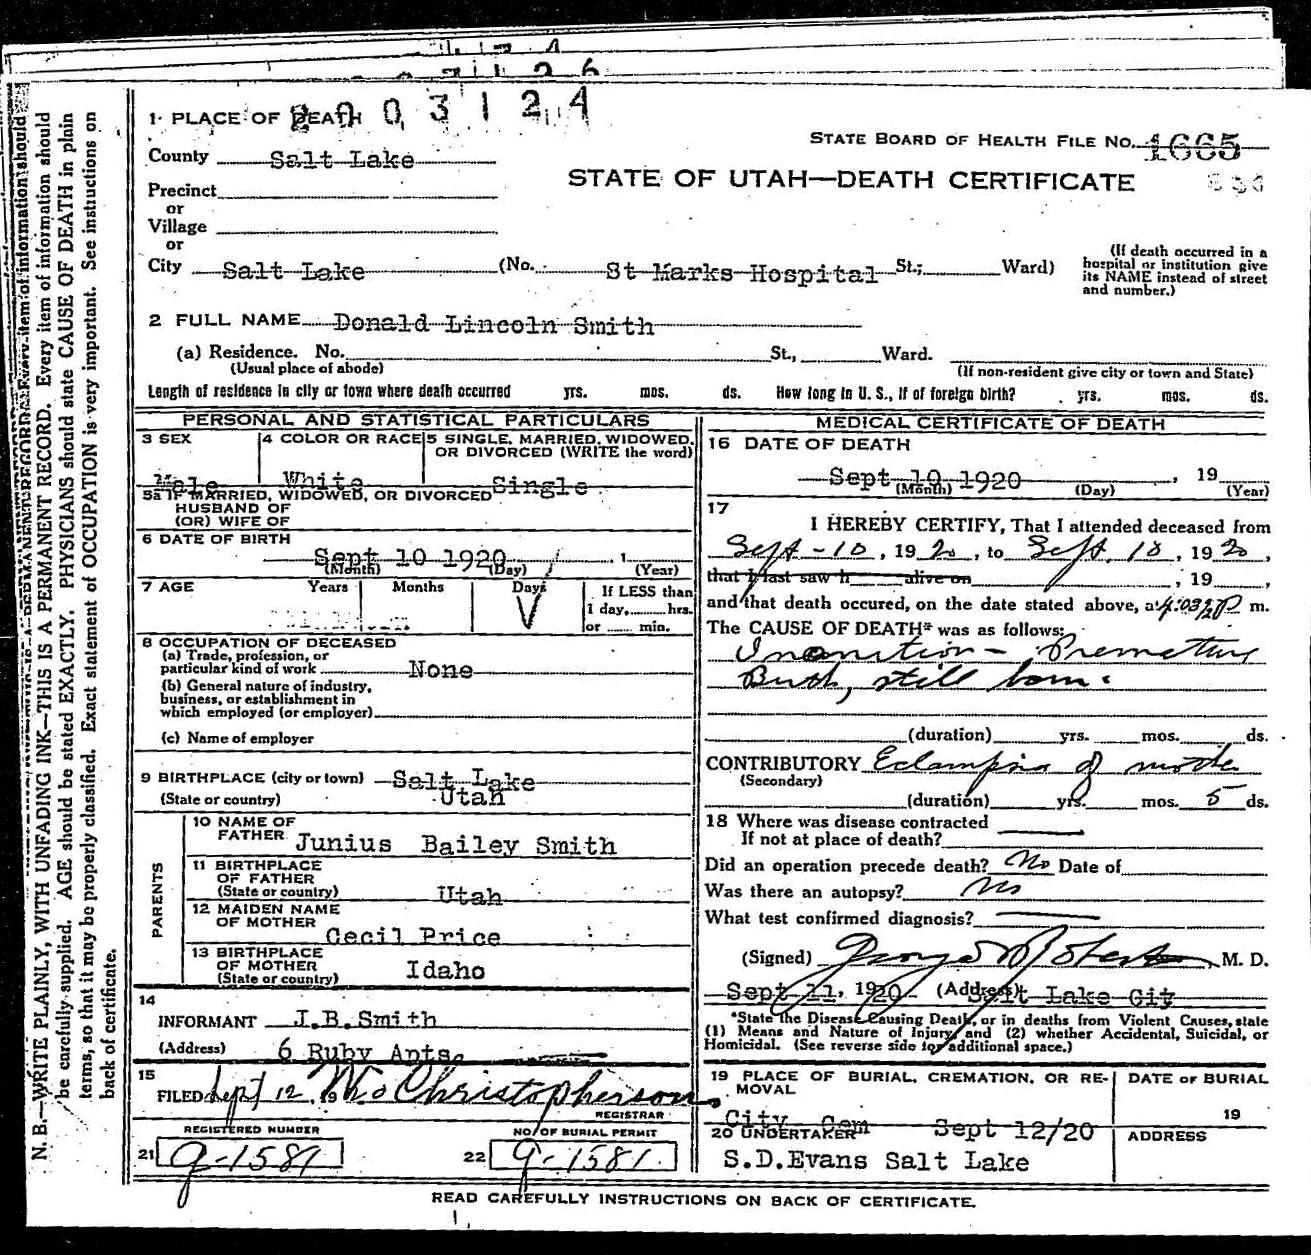 N. B.—WRITE PLAINLY, WITH UNFADING INK—THIS IS A PERMANENT RECORD. Every item of information should
be carefully supplied. AGE should be stated EXACTLY. PHYSICIANS should state CAUSE OF DEATH in plain
terms, so that it may be properly classified. Exact statement of OCCUPATION is very important. See instructions on
back of certificate.
2003124
1 PLACE OF DEATH
STATE BOARD OF HEALTH FILE No. 1665
County Salt Lake
STATE OF UTAH—DEATH CERTIFICATE
Precinct
or
Village
or
City Salt Lake (No. St Marks Hospital St.; Ward)
(If death occurred in a
hospital or institution give
its NAME instead of street
and number.)
2 FULL NAME Donald Lincoln Smith
(a) Residence. No. St., Ward.
(Usual place of abode) (If non-resident give city or town and State)
Length of residence in city or town where death occurred yrs. mos. ds. How long in U. S., if of foreign birth? yrs. mos. ds.
PERSONAL AND STATISTICAL PARTICULARS
3 SEX 4 COLOR OR RACE 5 SINGLE, MARRIED, WIDOWED,
OR DIVORCED (WRITE the word)
Male White Single
5a IF MARRIED, WIDOWED, OR DIVORCED
HUSBAND OF
(OR) WIFE OF
6 DATE OF BIRTH
Sept 10 1920
(Month) (Day) (Year)
7 AGE Years Months Days If LESS than
1 day, hrs.
or min.
8 OCCUPATION OF DECEASED
(a) Trade, profession, or
particular kind of work None
(b) General nature of industry,
business, or establishment in
which employed (or employer)
(c) Name of employer
9 BIRTHPLACE (city or town) Salt Lake
(State or country) Utah
PARENTS
10 NAME OF
FATHER Junius Bailey Smith
11 BIRTHPLACE
OF FATHER
(State or country) Utah
12 MAIDEN NAME
OF MOTHER
Cecil Price
13 BIRTHPLACE
OF MOTHER
(State or country) Idaho
14
INFORMANT J.B.Smith
(Address) 6 Ruby Apts.
15
FILED Sept 12, 19 Christopherson
REGISTRAR
REGISTERED NUMBER NO. OF BURIAL PERMIT
21 g-1581 22 g-1581
MEDICAL CERTIFICATE OF DEATH
16 DATE OF DEATH
Sept 10 1920, 19
(Month) (Day) (Year)
17
I HEREBY CERTIFY, That I attended deceased from
Sept-10, 1920, to Sept. 10, 1920,
that I last saw h alive on , 19 ,
and that death occured, on the date stated above, at 4:03 P m.
The CAUSE OF DEATH* was as follows:
Inanition - Premature
Birth, still born.
(duration) yrs. mos. ds.
CONTRIBUTORY Eclampsia of mother
(Secondary)
(duration) yrs. mos. 5 ds.
18 Where was disease contracted
If not at place of death?
Did an operation precede death? No Date of
Was there an autopsy? No
What test confirmed diagnosis?
(Signed) George M. D.
Sept 11, 1920 (Address) Salt Lake City
*State the Disease Causing Death, or in deaths from Violent Causes, state
(1) Means and Nature of Injury, and (2) whether Accidental, Suicidal, or
Homicidal. (See reverse side for additional space.)
19 PLACE OF BURIAL, CREMATION, OR RE-
MOVAL
DATE OF BURIAL
City Cem Sept 12/20 19
20 UNDERTAKER ADDRESS
S.D.Evans Salt Lake
READ CAREFULLY INSTRUCTIONS ON BACK OF CERTIFICATE.